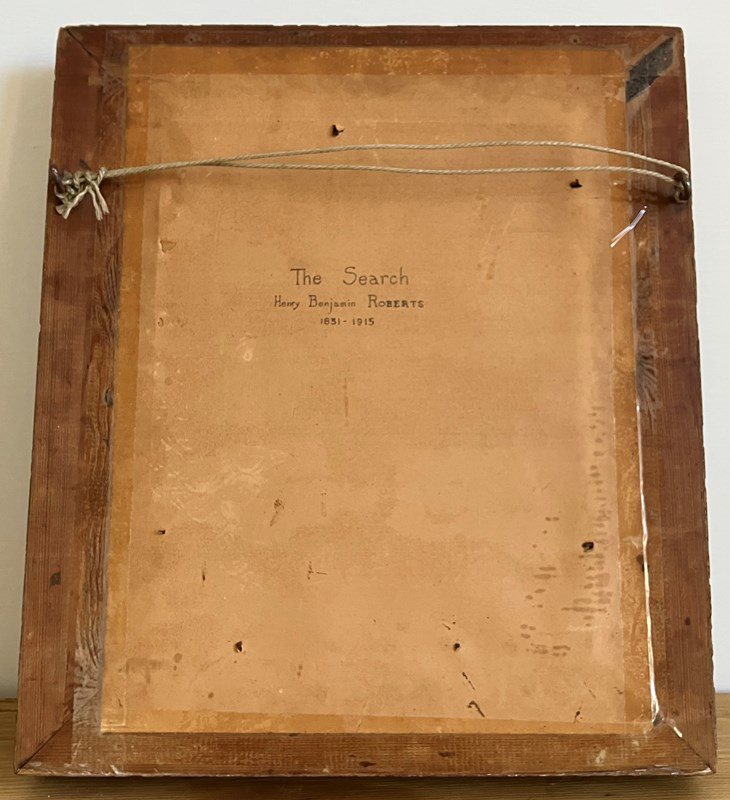 The Search
Henry Benjamin ROBERTS
1831-1915